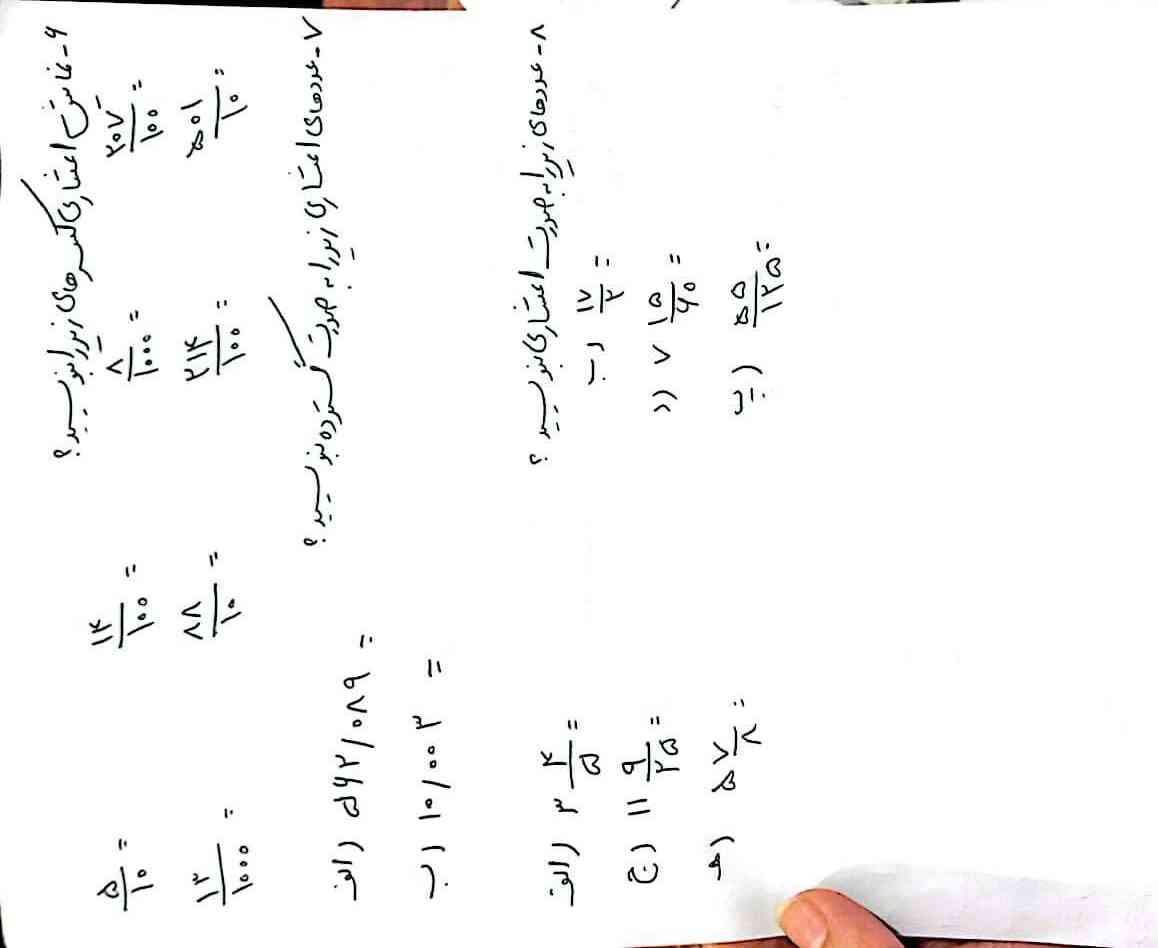 ۶- نمایش اعشاری کسرهای زیر را بنویسید؟
۵/۱۰ = ۱۴/۱۰۰ = ۸/۱۰۰۰ = ۲۰۷/۱۰۰ =
۱۳/۱۰۰۰ = ۸۸/۱۰ = ۲۱۴/۱۰۰ = ۵۰۱/۱۰ =
۷- عددهای اعشاری زیر را به صورت گسترده بنویسید؟
الف) ۵۶۲/۰۸۹ =
ب) ۱۰/۰۰۳ =
۸- عددهای زیر را به صورت اعشاری بنویسید؟
الف) ۳ ۴/۵ = ب) ۱۷/۲ =
ج) ۱۱ ۹/۲۵ = د) ۷ ۱۵/۶۰ =
ه) ۵ ۷/۸ = ۵۵/۱۲۵ =